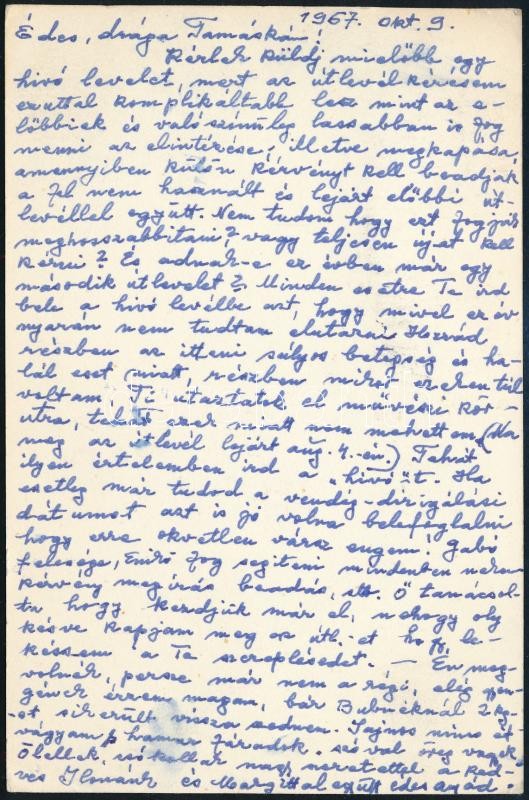 1967. okt. 9.
Édes, drága Tamáskám!
Kérlek küldj mielőbb egy
hivó levelet, mert az útlevél kérésem
ezuttal komplikáltabb lesz mint az e-
lőbbiek és valószinüleg lassabban is fog
menni az elintézése, illetve megkapása,
amennyiben külön kérvényt kell beadjak
a fel nem használt és lejárt előbbi út-
levéllel együtt. Nem tudom hogy ezt fogják
meghosszabbitani? vagy teljesen új-at kell
kérni? És adnak-e ez évben már egy
második útlevelet? Minden esetre Te ird
bele a hivó levélbe azt, hogy mivel ez év
nyarán nem tudtam elutazni Hozzád
részben az itteni súlyos betegség és ha-
lál eset miatt, részben mire ezeken túl
voltam, Ti utaztatok el művészi kör-
utra, tehát ezek miatt nem mehettem. (Ma
meg az útlevél lejárt aug. 4.-én.) Tehát
ilyen értelemben ird a "hivó"-t. Ha
esetleg már tudod a vendég-dirigálási
dátumot azt is jó volna belefoglalni
hogy erre okvetlen vársz engem! Gabó
felesége, Emikó fog segiteni mindenben nekem
kérvény megirás beadás, stb. Ő tanácsol-
ta hogy kezdjük már el, nehogy oly
késve kapjam meg az útl.-et hogy le-
késsem a Te szereplésedet. — Én meg-
volnék, persze már nem a régi, elég gyen-
gének érzem magam, bár Bubuéknál 2 kg-
ot sikerült vissza szednem. Sajnos nincs ét-
vágyam s hamar fáradok. szóval öreg vagyok
Ölellek, csókollak nagy szeretettel a ked-
ves Ilonánk és Margittal együtt édesanyád.